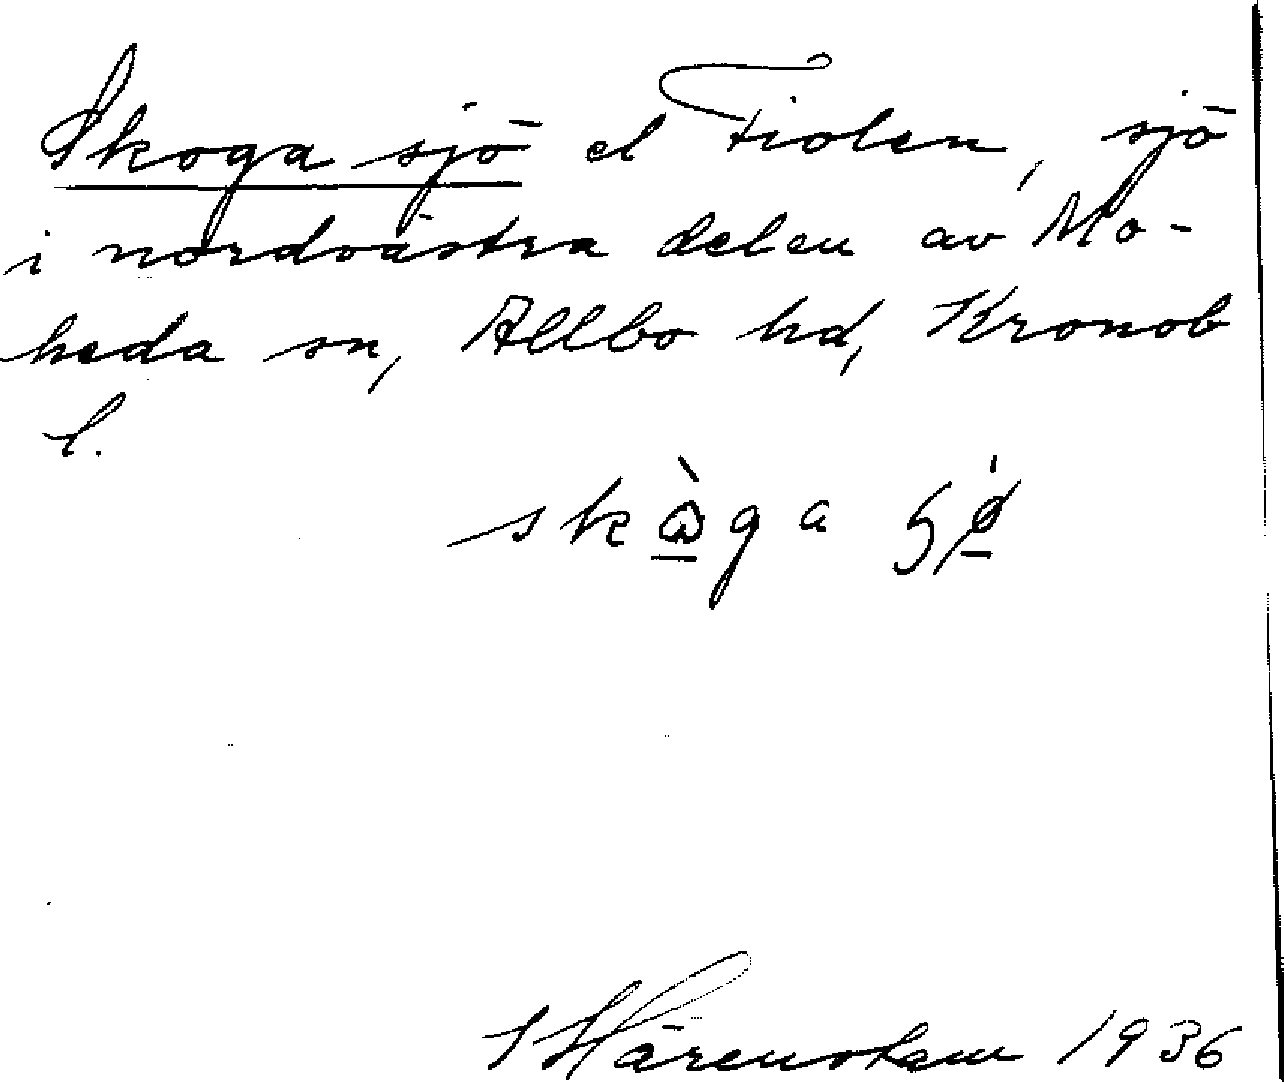 Skoga sjö el Fiolen, sjö
i nordvästra delen av Mo-
heda sn, Allbo hd, Kronob
l.
skòga
Härenstam 1936